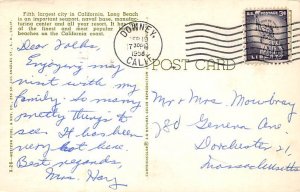 Fifth largest city in California, Long Beach
is an important seaport, naval base, manufac-
turing center and all year resort. It has one
of the finest and most popular
beaches on the California coast.
DOWNEY
7 30 PM
1958
CALIF.
LIBERTY
POST CARD
Dear Folks.
Enjoying my
visit with my
family. So many
pretty things to
see. It has been
very hot here.
Best regards,
Mrs. Hay
Mr & Mrs. Mowbray
780 Geneva Ave.
Dorchester 21,
Massachusetts